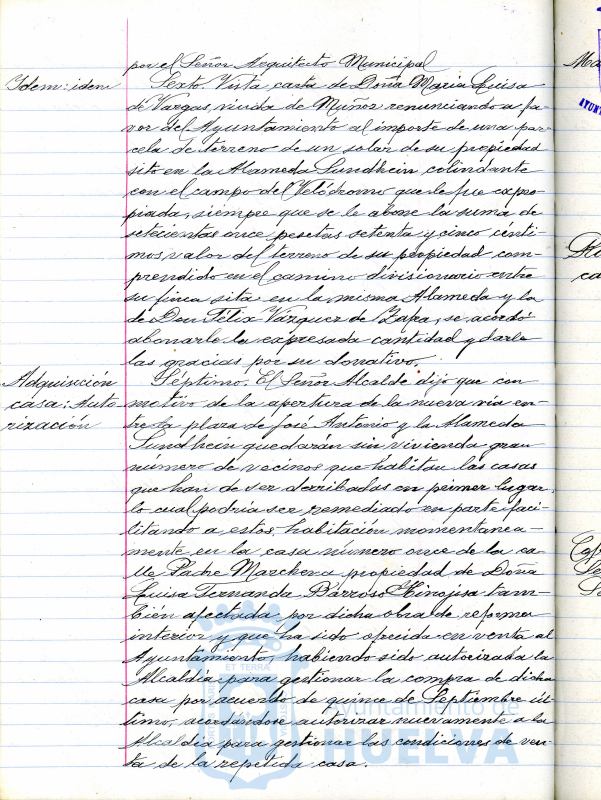 por el Señor Arquitecto Municipal
Idem: idem
Sexto. Vista carta de Doña Maria Luisa
de Vargas, viuda de Muñoz renunciando a fa-
vor del Ayuntamiento al importe de una par-
cela de terreno de un solar de su propiedad
sito en la Alameda Sundhein colindante
con el campo del Velódromo que le fue expro-
piada, siempre que se le abone la suma de
setecientas once pesetas setenta y cinco cénti-
mos, valor del terreno de su propiedad com-
prendido en el camino divisionario entre
su finca sita en la misma Alameda y la
de Don Félix Vázquez de Zafra, se acordó
abonarle la expresada cantidad y darle
las gracias por su donativo.
Adquisición
casa: Auto
rización
Séptimo. El Señor Alcalde dijo que con
motivo de la apertura de la nueva vía en-
tre la plaza de José Antonio y la Alameda
Sundhein quedarán sin vivienda gran
número de vecinos que habitan las casas
que han de ser derribadas en primer lugar,
lo cual podría ser remediado en parte faci-
litando a estos, habitación momentanea-
mente en la casa número once de la ca-
lle Padre Marchena propiedad de Doña
Luisa Fernanda Barroso Hinojosa tam-
bién afectada por dicha obra de reforma
interior y que ha sido ofrecida en venta al
Ayuntamiento, habiendo sido autorizada la
Alcaldía para gestionar la compra de dicha
casa por acuerdo de quince de Septiembre úl-
timo, acordándose autorizar nuevamente a la
Alcaldía para gestionar las condiciones de ven-
ta de la repetida casa.
ET TERRA
Ayuntamiento de
HUELVA